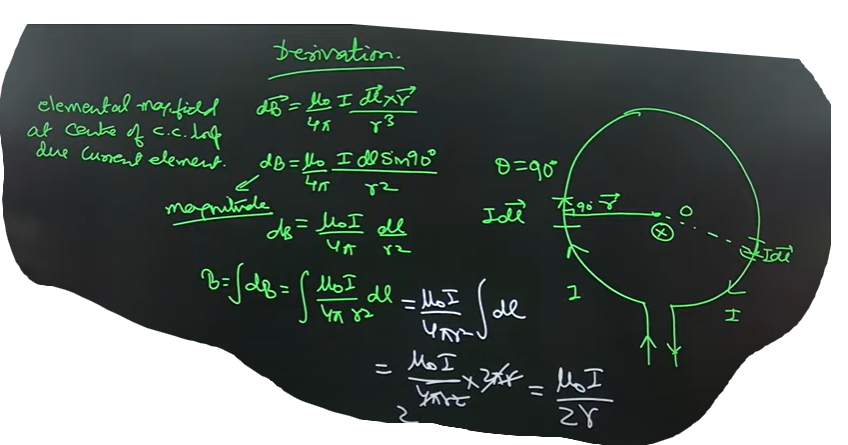 Derivation.
elemental mag. field
at centre of c.c. loop
due current element.
dB⃗ = μ₀/4π I dl⃗×r⃗/r³
dB = μ₀/4π I dl Sin90°/r²
magnitude
dB = μ₀I/4π dl/r²
B = ∫dB = ∫ μ₀I/4π r² dl = μ₀I/4πr² ∫ dl
= μ₀I/4πr² × 2πr = μ₀I/2r
2
θ = 90°
I dl⃗
90° r⃗
O
I dl⃗
I
I